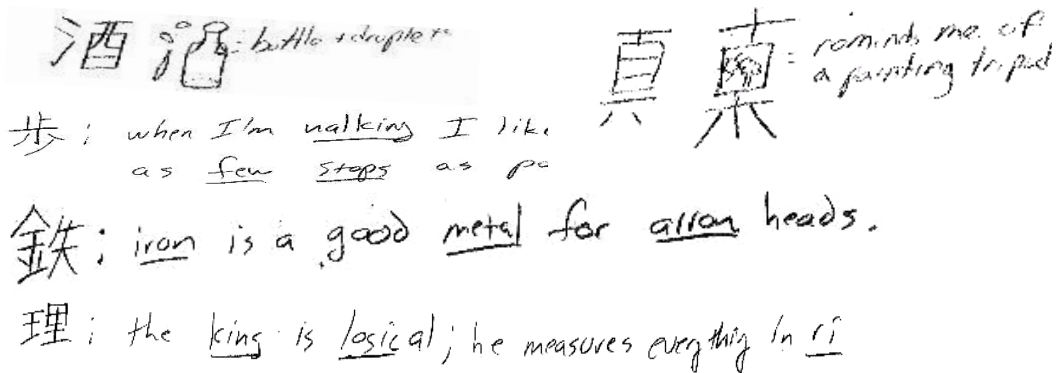 酒 = bottle + droplets
真 = reminds me of
a painting tripod
歩 ; when I'm walking I like
as few stops as po
鉄 ; iron is a good metal for arrow heads.
理 ; the king is logical ; he measures everything in ri